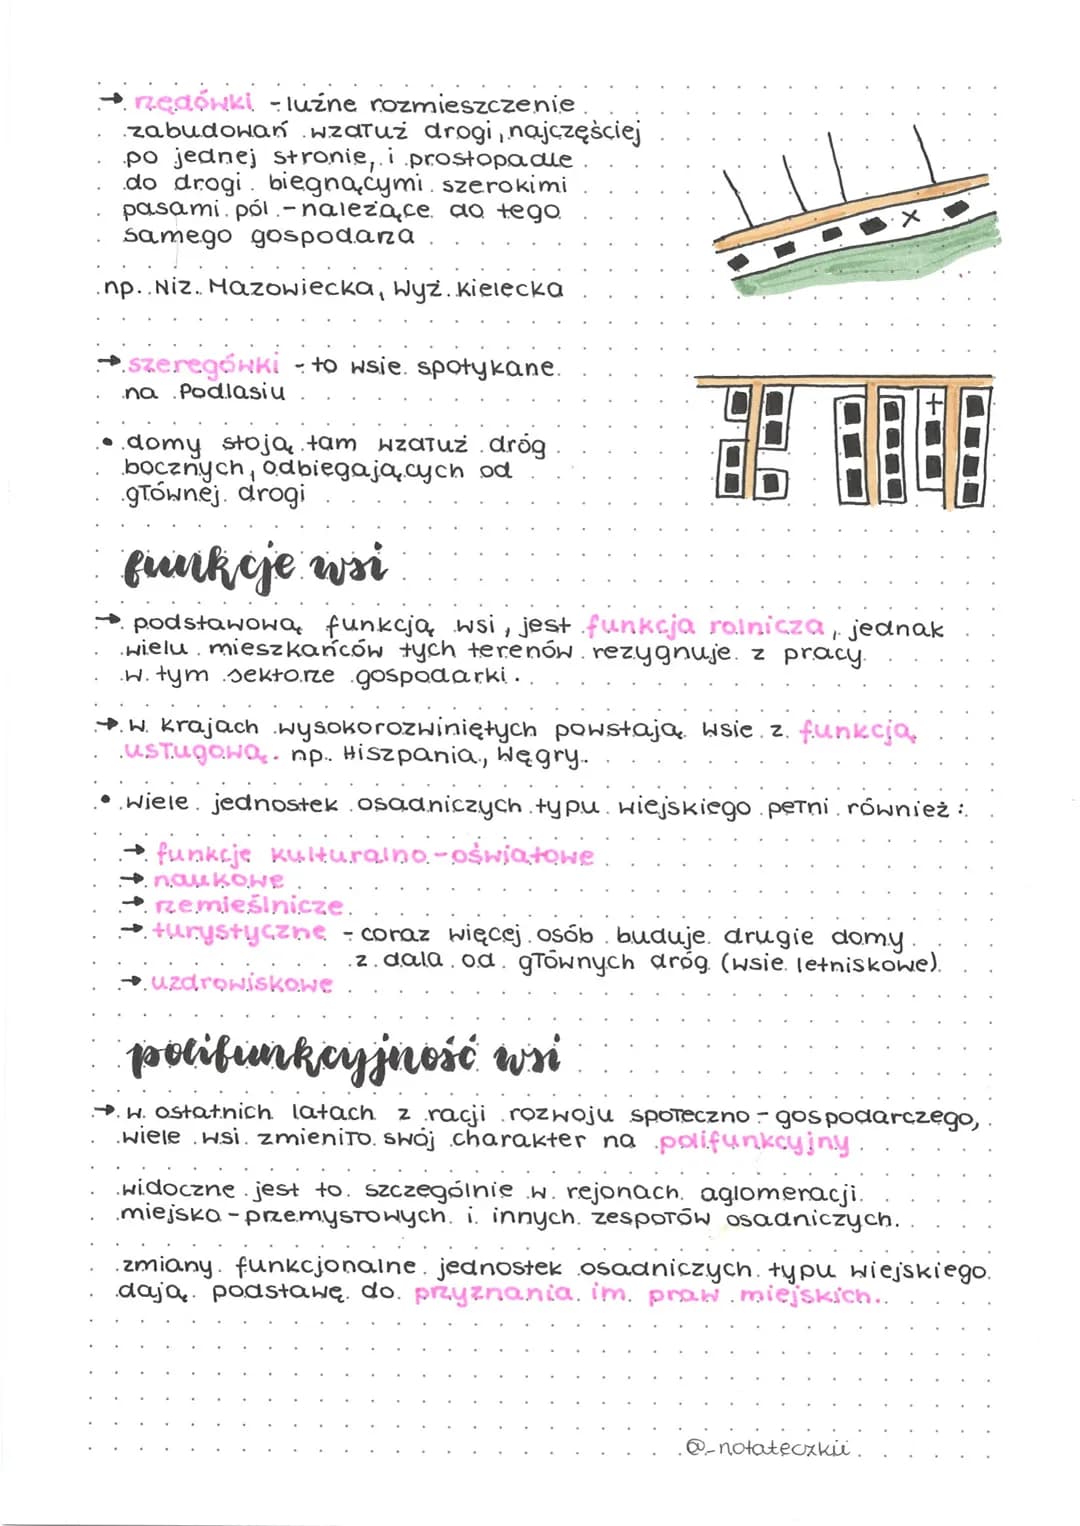 → rzędówki - luźne rozmieszczenie
zabudowań wzdłuż drogi, najczęściej
po jednej stronie, i prostopadle
do drogi biegnącymi szerokimi
pasami pól - należące do tego
samego gospodarza
np. Niz. Mazowiecka, Wyż. Kielecka
→ szeregówki - to wsie spotykane
na Podlasiu
• domy stoją tam wzdłuż dróg
bocznych, odbiegających od
głównej drogi
funkcje wsi
→ podstawową funkcją wsi, jest funkcja rolnicza, jednak
wielu mieszkańców tych terenów rezygnuje z pracy
w tym sektorze gospodarki.
→ w krajach wysokorozwiniętych powstają wsie z funkcją
usługową. np. Hiszpania, Węgry.
• wiele jednostek osadniczych typu wiejskiego pełni również:
→ funkcje kulturalno-oświatowe
→ naukowe
→ rzemieślnicze
→ turystyczne - coraz więcej osób buduje drugie domy
z dala od głównych dróg (wsie letniskowe)
→ uzdrowiskowe
polifunkcyjność wsi
→ w ostatnich latach z racji rozwoju społeczno-gospodarczego,
wiele wsi zmieniło swój charakter na polifunkcyjny
widoczne jest to szczególnie w rejonach aglomeracji
miejsko-przemysłowych i innych zespołów osadniczych.
zmiany funkcjonalne jednostek osadniczych typu wiejskiego
dają podstawę do przyznania im praw miejskich.
@_notateczkii